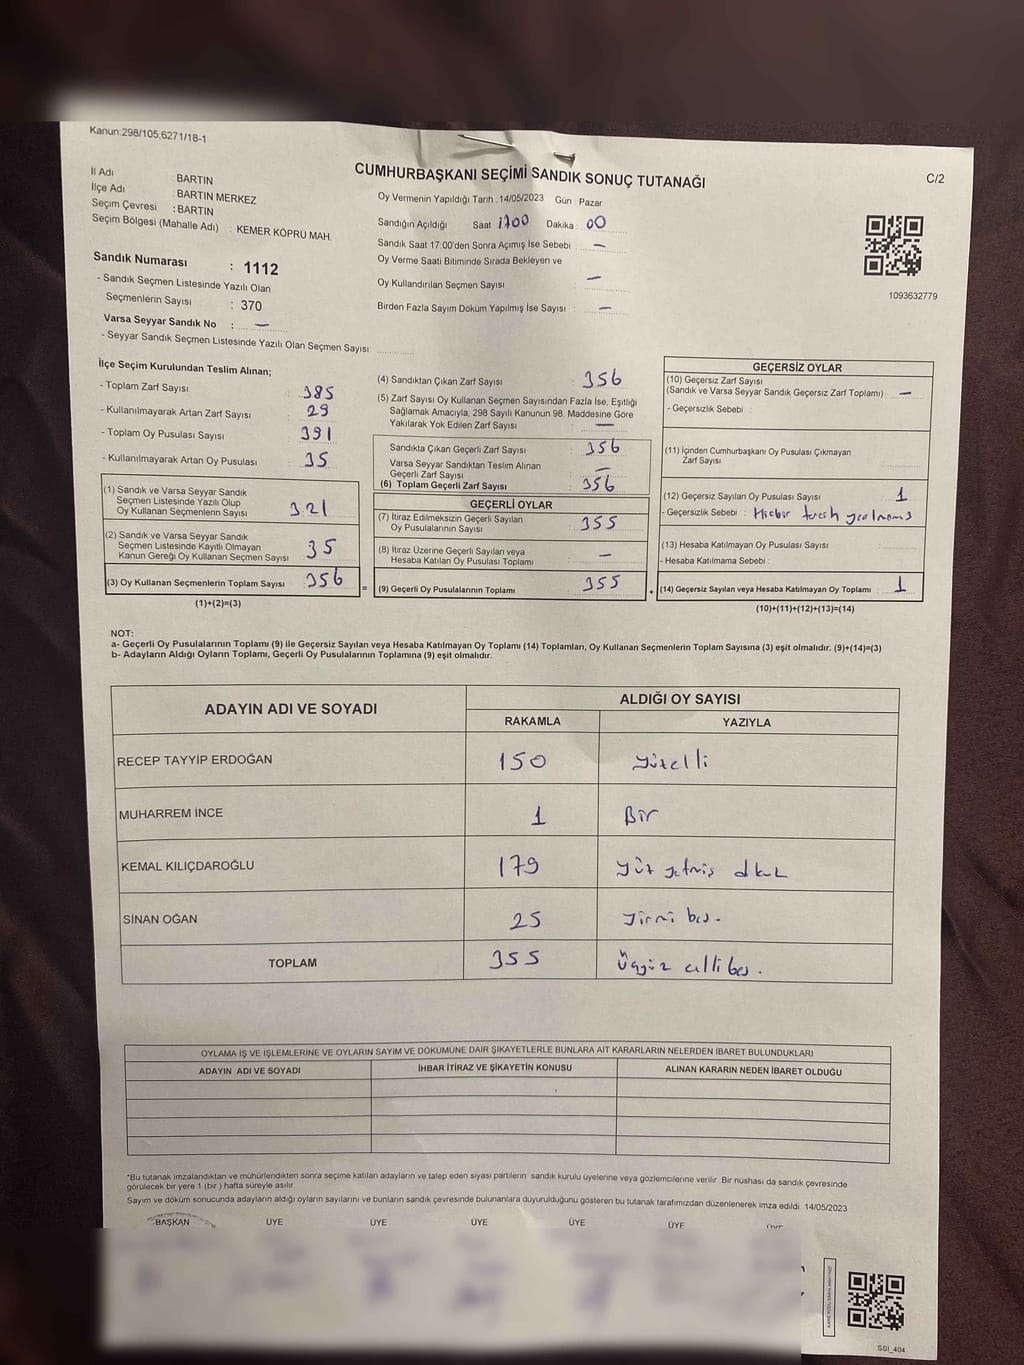 Kanun:298/105,6271/18-1
CUMHURBAŞKANI SEÇİMİ SANDIK SONUÇ TUTANAĞI
C/2
İl Adı : BARTIN
İlçe Adı : BARTIN MERKEZ
Seçim Çevresi : BARTIN
Seçim Bölgesi (Mahalle Adı) : KEMER KÖPRÜ MAH.
Sandık Numarası : 1112
- Sandık Seçmen Listesinde Yazılı Olan
Seçmenlerin Sayısı : 370
Varsa Seyyar Sandık No : —
- Seyyar Sandık Seçmen Listesinde Yazılı Olan Seçmen Sayısı:
Oy Vermenin Yapıldığı Tarih : 14/05/2023 Gün : Pazar
Sandığın Açıldığı Saat 1700 Dakika : 00
Sandık Saat 17:00'den Sonra Açılmış İse Sebebi : —
Oy Verme Saati Bitiminde Sırada Bekleyen ve
Oy Kullandırılan Seçmen Sayısı : —
Birden Fazla Sayım Döküm Yapılmış İse Sayısı : —
1093632779
İlçe Seçim Kurulundan Teslim Alınan;
- Toplam Zarf Sayısı : 385
- Kullanılmayarak Artan Zarf Sayısı : 29
- Toplam Oy Pusulası Sayısı : 391
- Kullanılmayarak Artan Oy Pusulası : 35
(1) Sandık ve Varsa Seyyar Sandık
Seçmen Listesinde Yazılı Olup
Oy Kullanan Seçmenlerin Sayısı : 321
(2) Sandık ve Varsa Seyyar Sandık
Seçmen Listesinde Kayıtlı Olmayan
Kanun Gereği Oy Kullanan Seçmen Sayısı : 35
(3) Oy Kullanan Seçmenlerin Toplam Sayısı : 356
(1)+(2)=(3)
(4) Sandıktan Çıkan Zarf Sayısı : 356
(5) Zarf Sayısı Oy Kullanan Seçmen Sayısından Fazla İse, Eşitliği
Sağlamak Amacıyla, 298 Sayılı Kanunun 98. Maddesine Göre
Yakılarak Yok Edilen Zarf Sayısı : —
Sandıkta Çıkan Geçerli Zarf Sayısı : 356
Varsa Seyyar Sandıktan Teslim Alınan
Geçerli Zarf Sayısı : —
(6) Toplam Geçerli Zarf Sayısı : 356
GEÇERLİ OYLAR
(7) İtiraz Edilmeksizin Geçerli Sayılan
Oy Pusulalarının Sayısı : 355
(8) İtiraz Üzerine Geçerli Sayılan veya
Hesaba Katılan Oy Pusulası Toplamı : —
= (9) Geçerli Oy Pusulalarının Toplamı : 355
GEÇERSİZ OYLAR
(10) Geçersiz Zarf Sayısı
(Sandık ve Varsa Seyyar Sandık Geçersiz Zarf Toplamı) : —
- Geçersizlik Sebebi :
(11) İçinden Cumhurbaşkanı Oy Pusulası Çıkmayan
Zarf Sayısı
(12) Geçersiz Sayılan Oy Pusulası Sayısı : 1
- Geçersizlik Sebebi : Hiçbir
(13) Hesaba Katılmayan Oy Pusulası Sayısı :
- Hesaba Katılmama Sebebi :
+ (14) Geçersiz Sayılan veya Hesaba Katılmayan Oy Toplamı : 1
(10)+(11)+(12)+(13)=(14)
NOT:
a- Geçerli Oy Pusulalarının Toplamı (9) ile Geçersiz Sayılan veya Hesaba Katılmayan Oy Toplamı (14) Toplamları, Oy Kullanan Seçmenlerin Toplam Sayısına (3) eşit olmalıdır. (9)+(14)=(3)
b- Adayların Aldığı Oyların Toplamı, Geçerli Oy Pusulalarının Toplamına (9) eşit olmalıdır.
ADAYIN ADI VE SOYADI ALDIĞI OY SAYISI
RAKAMLA YAZIYLA
RECEP TAYYİP ERDOĞAN 150 yüzelli
MUHARREM İNCE 1 Bir
KEMAL KILIÇDAROĞLU 179 yüz yetmiş dkuz
SİNAN OĞAN 25 yirmi beş.
TOPLAM 355 Üçyüz elli beş.
OYLAMA İŞ VE İŞLEMLERİNE VE OYLARIN SAYIM VE DÖKÜMÜNE DAİR ŞİKAYETLERLE BUNLARA AİT KARARLARIN NELERDEN İBARET BULUNDUKLARI
ADAYIN ADI VE SOYADI İHBAR İTİRAZ VE ŞİKAYETİN KONUSU ALINAN KARARIN NEDEN İBARET OLDUĞU
*Bu tutanak imzalandıktan ve mühürlendikten sonra seçime katılan adayların ve talep eden siyasi partilerin sandık kurulu üyelerine veya gözlemcilerine verilir. Bir nüshası da sandık çevresinde
görülecek bir yere 1 (bir ) hafta süreyle asılır.
Sayım ve döküm sonucunda adayların aldığı oyların sayılarını ve bunların sandık çevresinde bulunanlara duyurulduğunu gösteren bu tutanak tarafımızdan düzenlenerek imza edildi. 14/05/2023
BAŞKAN ÜYE ÜYE ÜYE ÜYE ÜYE ÜYE
SSI_404